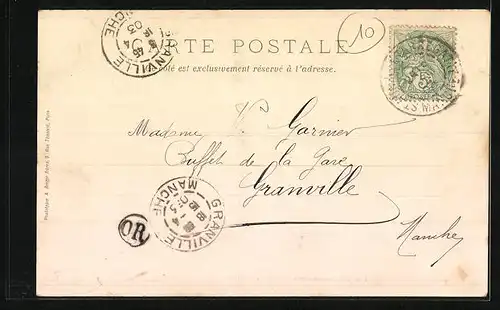 CARTE POSTALE
Ce côté est exclusivement réservé à l'adresse.
10
GRANVILLE
MANCHE
03
Madame Vve Garnier
Buffet de la Gare
Granville
Manche
GRANVILLE
MANCHE
OR